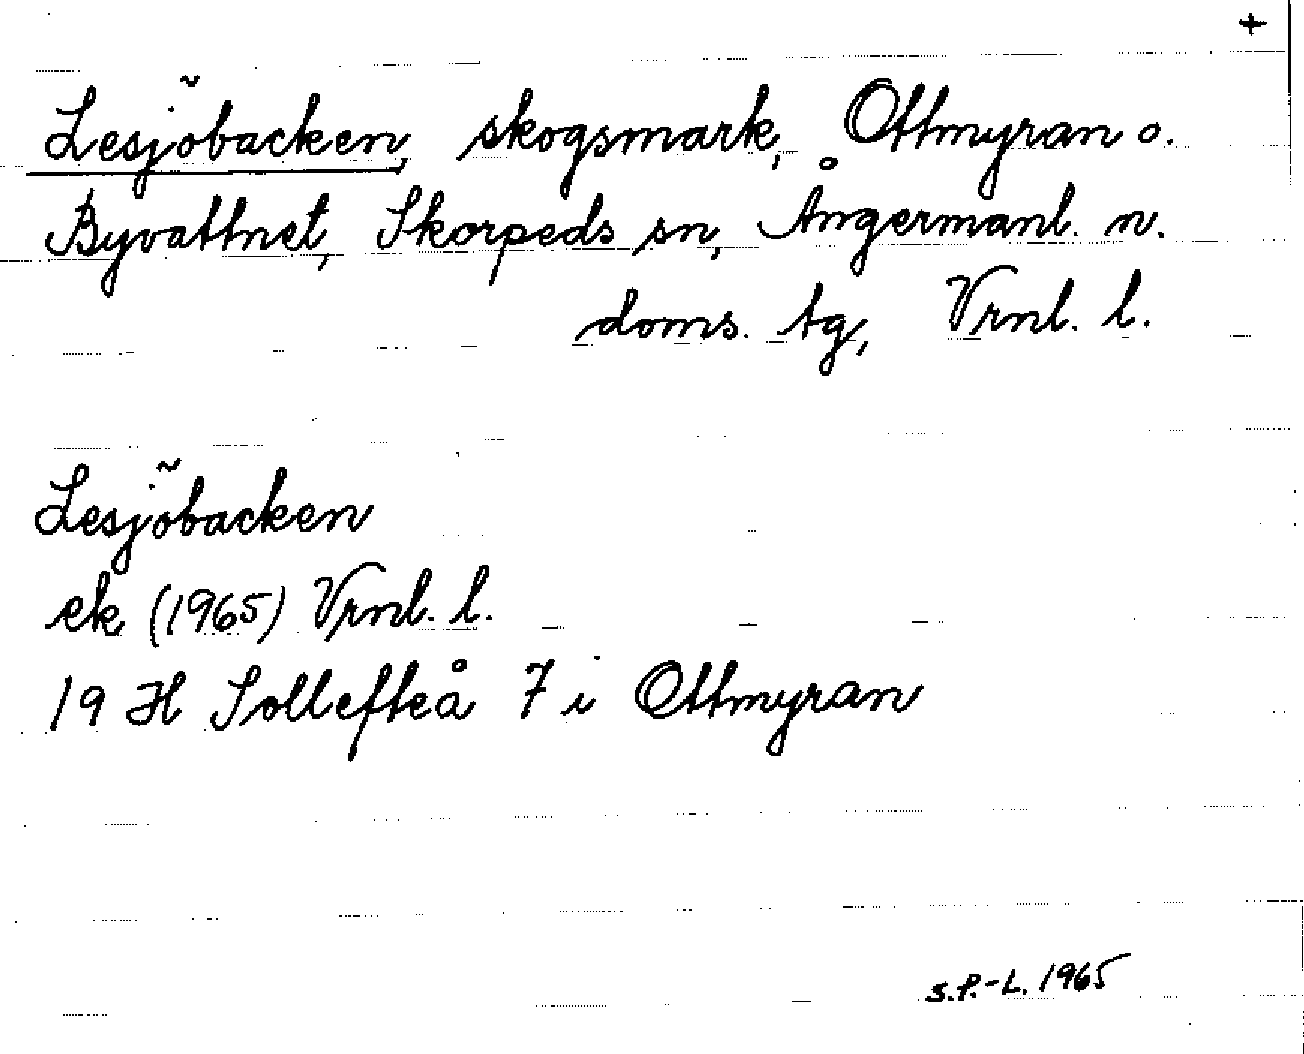 +
Lesjöbacken, skogsmark, Ottmyran o.
Byvattnet, Skorpeds sn, Ångermanl. n.
doms. tg, Vrnl. l.
Lesjöbacken
ek (1965) Vrnl. l.
19 H Sollefteå 7 i Ottmyran
S.P.-L. 1965